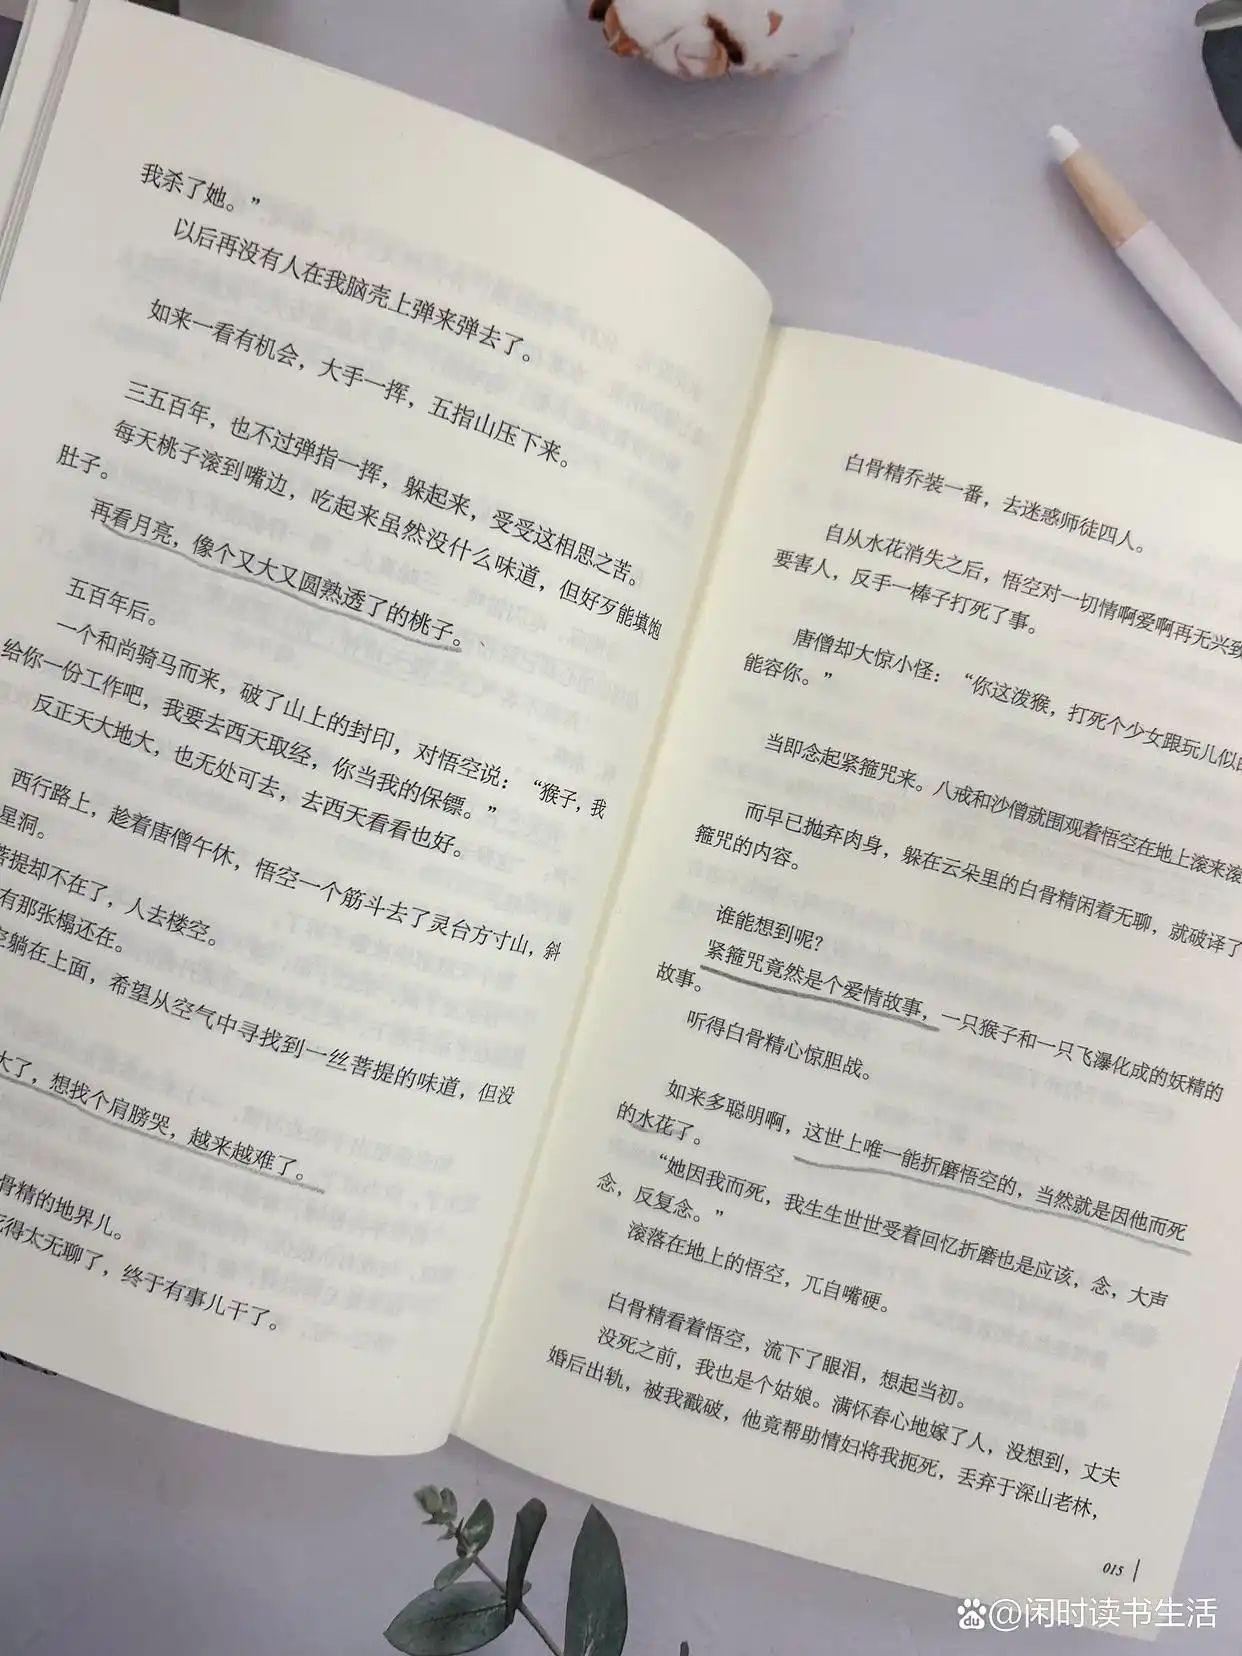 我杀了她。”
以后再没有人在我脑壳上弹来弹去了。
如来一看有机会，大手一挥，五指山压下来。
三五百年，也不过弹指一挥，躲起来，受受这相思之苦。
每天桃子滚到嘴边，吃起来虽然没什么味道，但好歹能填饱
肚子。
再看月亮，像个又大又圆熟透了的桃子。
五百年后。
一个和尚骑马而来，破了山上的封印，对悟空说：“猴子，我
给你一份工作吧，我要去西天取经，你当我的保镖。”
反正天大地大，也无处可去，去西天看看也好。
西行路上，趁着唐僧午休，悟空一个筋斗去了灵台方寸山，斜
星洞。
菩提却不在了，人去楼空。
有那张榻还在。
空躺在上面，希望从空气中寻找到一丝菩提的味道，但没
大了，想找个肩膀哭，越来越难了。
骨精的地界儿。
得太无聊了，终于有事儿干了。
白骨精乔装一番，去迷惑师徒四人。
自从水花消失之后，悟空对一切情啊爱啊再无兴致
要害人，反手一棒子打死了事。
唐僧却大惊小怪：“你这泼猴，打死个少女跟玩儿似的
能容你。”
当即念起紧箍咒来。八戒和沙僧就围观着悟空在地上滚来滚
而早已抛弃肉身，躲在云朵里的白骨精闲着无聊，就破译了
箍咒的内容。
谁能想到呢？
紧箍咒竟然是个爱情故事，一只猴子和一只飞瀑化成的妖精的
故事。
听得白骨精心惊胆战。
如来多聪明啊，这世上唯一能折磨悟空的，当然就是因他而死
的水花了。
“她因我而死，我生生世世受着回忆折磨也是应该，念，大声
念，反复念。”
滚落在地上的悟空，兀自嘴硬。
白骨精看着悟空，流下了眼泪，想起当初。
没死之前，我也是个姑娘。满怀春心地嫁了人，没想到，丈夫
婚后出轨，被我戳破，他竟帮助情妇将我扼死，丢弃于深山老林，
015
du @闲时读书生活